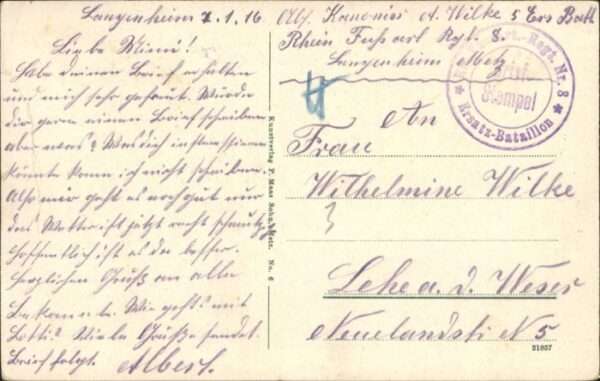 Langenheim 2.1.16
Abs. Kanonier A. Wilke 5 Ers Batt
Rhein Fuss art Rgt. 8.
Langenheim Metz
Liebe Mimi!
Habe deinen Brief erhalten
und mich sehr gefreut. Würde
dir gern einen Brief schreiben
aber was? Was dich interessieren
könnte kann ich nicht schreiben.
Also mir geht es noch gut nur
das Wetter ist jetzt recht schmutzig
Hoffentlich ist es da besser.
Herzlichen Gruß an alle
Bekannte. Wie geht's mit
Lotti? Viele Grüße sendet
Brief folgt. Albert.
Kunstverlag P. Maas Sohn, Metz. No. 6
Regt. Nr. 8
Brief-
Stempel
Ersatz-Bataillon
An
Frau
Wilhelmine Wilke
Lehe a. d. Weser
Neuelandstr N 5
31857